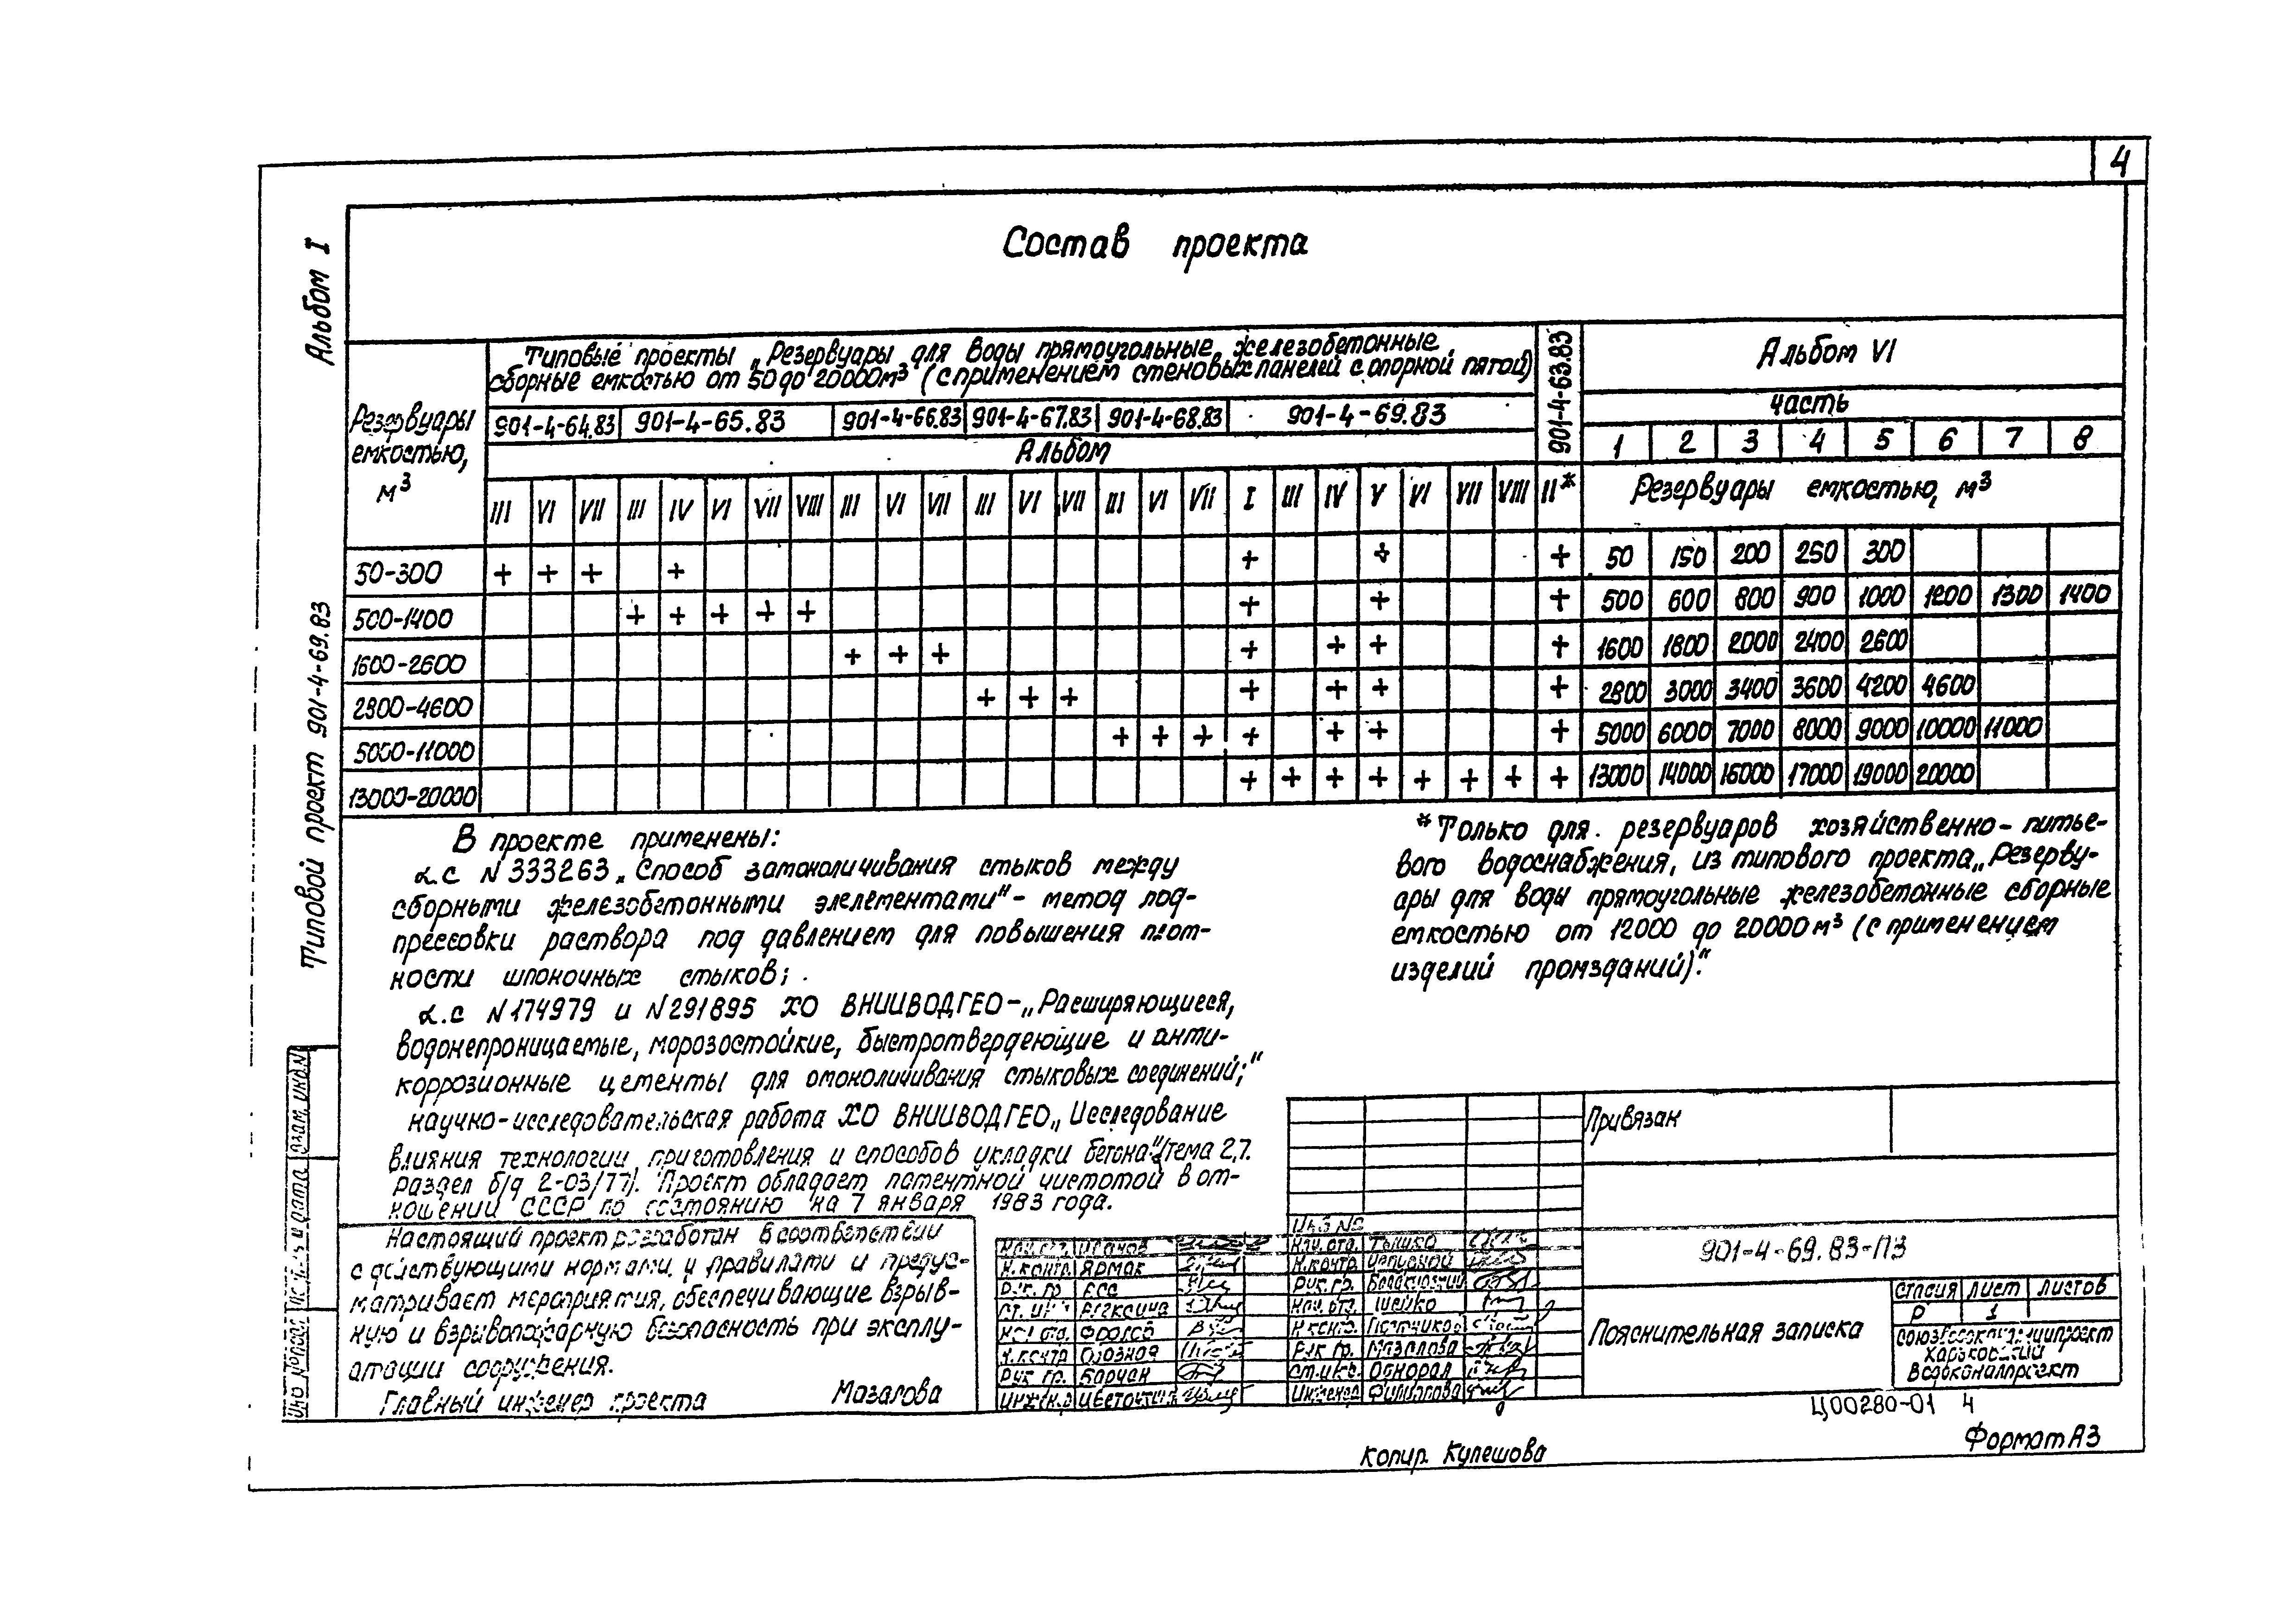 4
Альбом I
Типовой проект 901-4-69.83
Состав проекта
Резервуары
емкостью,
м³
Типовые проекты „Резервуары для воды прямоугольные железобетонные
сборные емкостью от 50 до 20000м³ (с применением стеновых панелей с опорной пятой)
901-4-64.83 901-4-65.83 901-4-66.83 901-4-67.83 901-4-68.83 901-4-69.83
901-4-63.83
Альбом
Альбом VI
часть
1 2 3 4 5 6 7 8
III VI VII III IV VI VII VIII III VI VII III VI VII III VI VII I III IV V VI VII VIII II*
Резервуары емкостью, м³
50-300 + + + + + + + 50 150 200 250 300
500-1400 + + + + + + + + 500 600 800 900 1000 1200 1300 1400
1600-2600 + + + + + + + 1600 1800 2000 2400 2600
2800-4600 + + + + + + + 2800 3000 3400 3600 4200 4600
5000-11000 + + + + + + + 5000 6000 7000 8000 9000 10000 11000
13000-20000 + + + + + + + + 13000 14000 16000 17000 19000 20000
В проекте применены:
а.с N 333263 „Способ замоноличивания стыков между
сборными железобетонными элелементами“ - метод под-
прессовки раствора под давлением для повышения плот-
ности шпоночных стыков;
а.с N 174979 и N 291895 ХО ВНИИВОДГЕО - „Расширяющиеся,
водонепроницаемые, морозостойкие, быстротвердеющие и анти-
коррозионные цементы для омоноличивания стыковых соединений;“
научно-исследовательская работа ХО ВНИИВОДГЕО „Исследование
влияния технологии приготовления и способов укладки бетона“ /тема 2.7.
раздел б/д 2-03/77). Проект обладает патентной чистотой в от-
ношении СССР по состоянию на 7 января 1983 года.
*Только для резервуаров хозяйственно-питье-
вого водоснабжения, из типового проекта „Резерву-
ары для воды прямоугольные железобетонные сборные
емкостью от 12000 до 20000 м³ (с применением
изделий промзданий)“.
Настоящий проект разработан в соответствии
с действующими нормами и правилами и предус-
матривает мероприятия, обеспечивающие взрыв-
ную и взрывопожарную безопасность при эксплу-
атации сооружения.
Главный инженер проекта Мазалова
Взам. инв. N
Подп. и дата
Инв N подл
Нач. отд. Иванов
Н. контр. Ярмак
Рук. гр.
Ст. инж.
Нач. отд. Фролов
Н. контр.
Рук. гр. Барчан
Инжен.
Инв N°
Нач. отд.
Н. контр.
Рук. гр.
Нач. отд. Шейко
Н. контр.
Рук. гр. Мазалова
Ст. инж. Однорал
Инженер Филиппова
Привязан
901-4-69.83-ПЗ
Пояснительная записка
Стадия Лист Листов
Р 1
Союзводоканалниипроект
Харьковский
Водоканалпроект
Ц00280-01 4
Копир. Кулешова
Формат А3